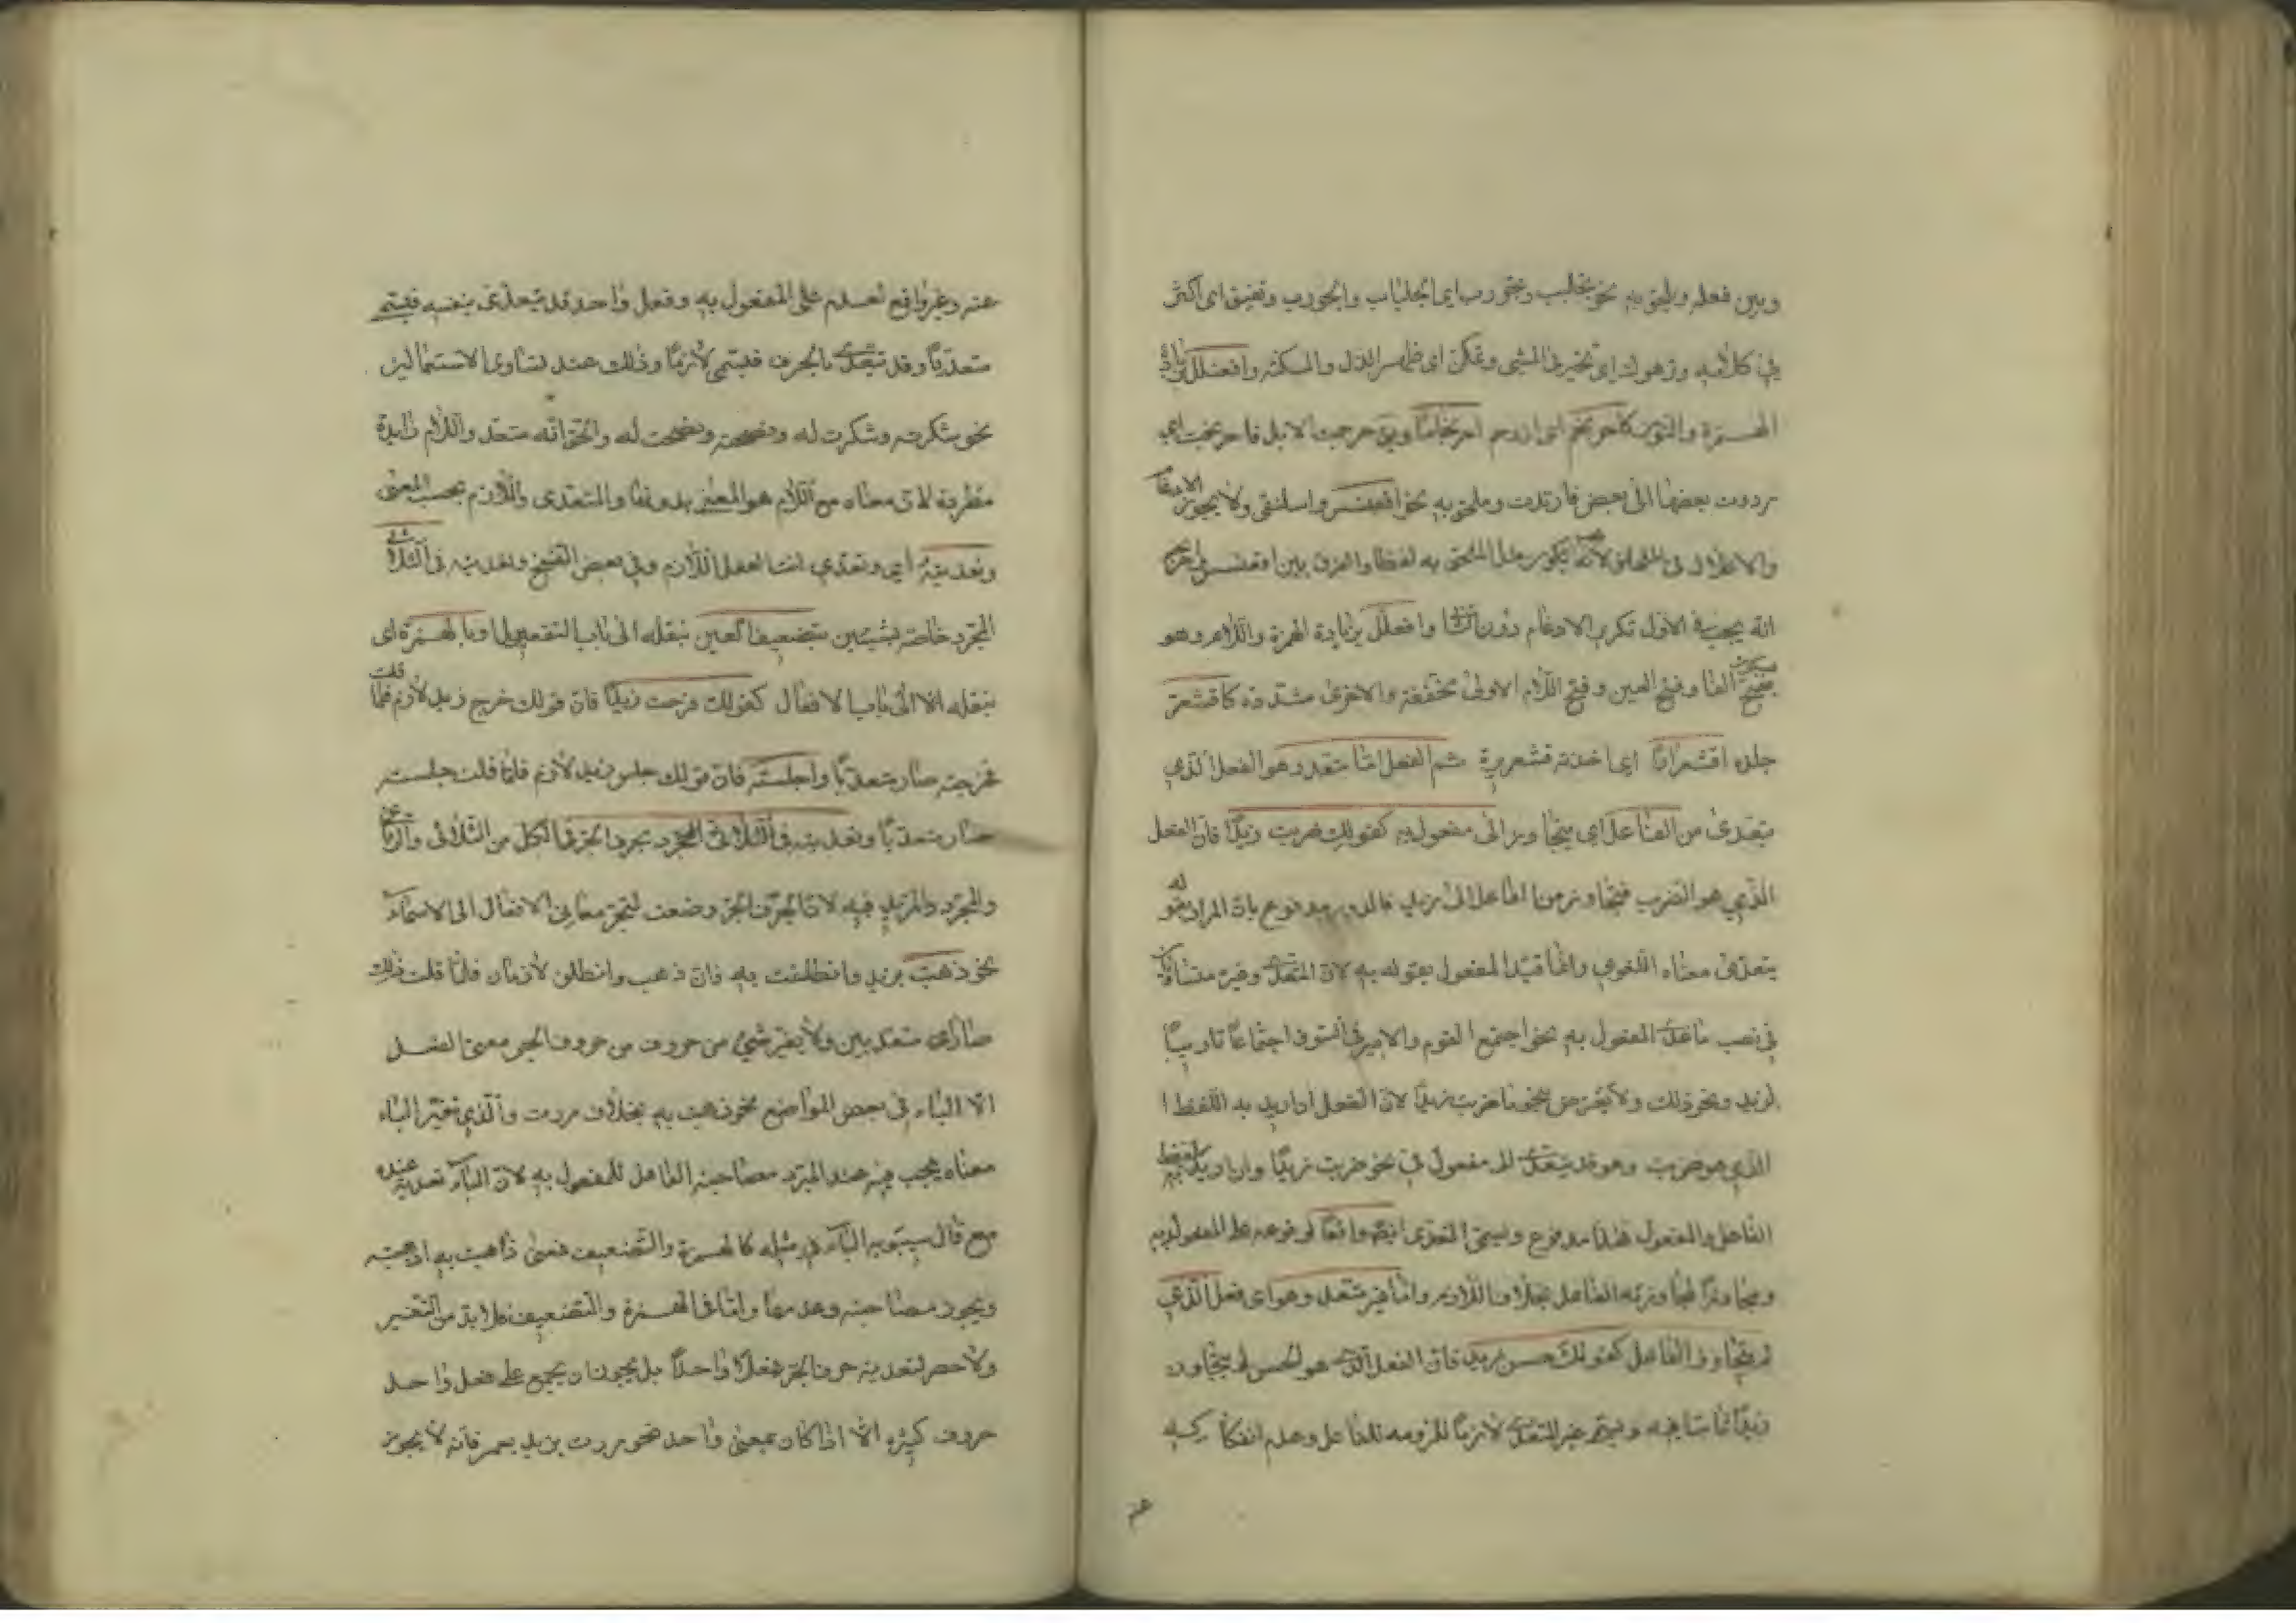 وبين فعله ويلحق به نحو تجلبب وتجورب اي الجلباب والجورب وتفيهق اي اكثر
في كلامه وترهوك اي تبختر في المشي وتمكن اي ظهر الذل والمسكنة وافعنلل بزيادة
الهمزة والنون كاحرنجم اي ازدحم احرنجاما ويق حرجمت الابل فاحرنجمت اي
رددت بعضها الى بعض فارتدت وملحق به نحو اقعنسس واسلنقى ولا يجوز الادغام
والاعلال في الملحق لانه يجب ان يكون مثل الملحق به لفظا والفرق بين اقعنسس واحرنجم
انه يجب في الاول تكرير الادغام دون الثاني وافعلل بزيادة الهمزة واللام وهو
بسكون الفا وفتح العين وفتح اللام الاولى مخففة والاخرى مشددة كاقشعر
جلده اقشعرارا اي اخذته قشعريرة ثم الفعل اما متعد وهو الفعل الذي
يتعدى من الفاعل اي يتجاوز الى مفعول به كقولك ضربت زيدا فان الفعل
الذي هو الضرب قد جاوز من الفاعل الى زيد فالدور مدفوع بان المراد بقوله
يتعدى معناه اللغوي وانما قيد المفعول بقوله به لان المتعدي وغيره متساويان
في نصب ما عدا المفعول به نحو اجتمع القوم والامير في السوق اجتماعا تاديبا
لزيد ونحو ذلك ولا يعترض بنحو ما ضربت زيدا لان الفعل اذا اريد به اللفظ
الذي هو ضربت وهو قد يتعدى الى مفعول في نحو ضربت زيدا وان اريد بلفظ
الفاعل والمفعول فهذا مدفوع ويسمى المتعدي ايضا واقعا لوقوعه على المفعول به
ومجاوزا لمجاوزته الفاعل بخلاف اللازم واما غير متعد وهو اي فعل الذي
لم يتجاوز الفاعل كقولك حسن زيد فان الفعل الذي هو الحسن لم يتجاوز
زيدا بل ثابتا فيه ويسمى غير المتعدي لازما للزومه للفاعل وعدم انفكاكه
عنه
عنه وغير واقع لعدم على المفعول به وفعل واحد قد يتعدى بنفسه فيسمى
متعديا وقد يتعدى بالحرف فيسمى لازما وذلك عند تساوي الاستعمالين
نحو شكرته وشكرت له ونصحته ونصحت له والحق انه متعد واللام زايدة
مطردة لان معناه مع اللام هو المعنى بدونها والمتعدي واللازم بحسب المعنى
وتعديته اي وتعدي انت الفعل اللازم وفي بعض النسخ وتعديته في الثلاثي
المجرد خاصة بشيئين بتضعيف العين بنقله الى باب التفعيل او بالهمزة اي
بنقله الى باب الافعال كقولك فرحت زيدا فان قولك خرج زيد لازم فلما قلت
خرجته صار متعديا واجلسته فان قولك جلس زيد لازم فلما قلت جلسته
صار متعديا وتعديته في الثلاثي المجرد بحرف الجر في الكل من الثلاثي والرباعي
والمجرد والمزيد فيه لان الحروف الجر وضعت لتجر معاني الافعال الى الاسماء
نحو ذهبت بزيد وانطلقت به فان ذهب وانطلق لازمان فلما قلت ذلك
صارا متعديين ولا يغير شيء من حروف من حروف الجر معنى الفعل
الا الباء في بعض المواضع نحو ذهبت به بخلاف مررت والذي تغير الباء
معناه يجب فيه عند المبرد مصاحبة الفاعل للمفعول به لان الباء تعديته عنده
مع قال سيبويه الباء في مثله كالهمزة والتضعيف فمعنى ذهبت به اذهبته
ويجوز مصاحبته وعدمها واما في الهمزة والتضعيف فلا بد من التغيير
ولا حصر لتعدية حروف الجر فعلا واحدا بل يجوز ان يجمع على فعل واحد
حروف كثيرة الا اذا كان بمعنى واحد نحو مررت بزيد بعمر فانه لا يجوز